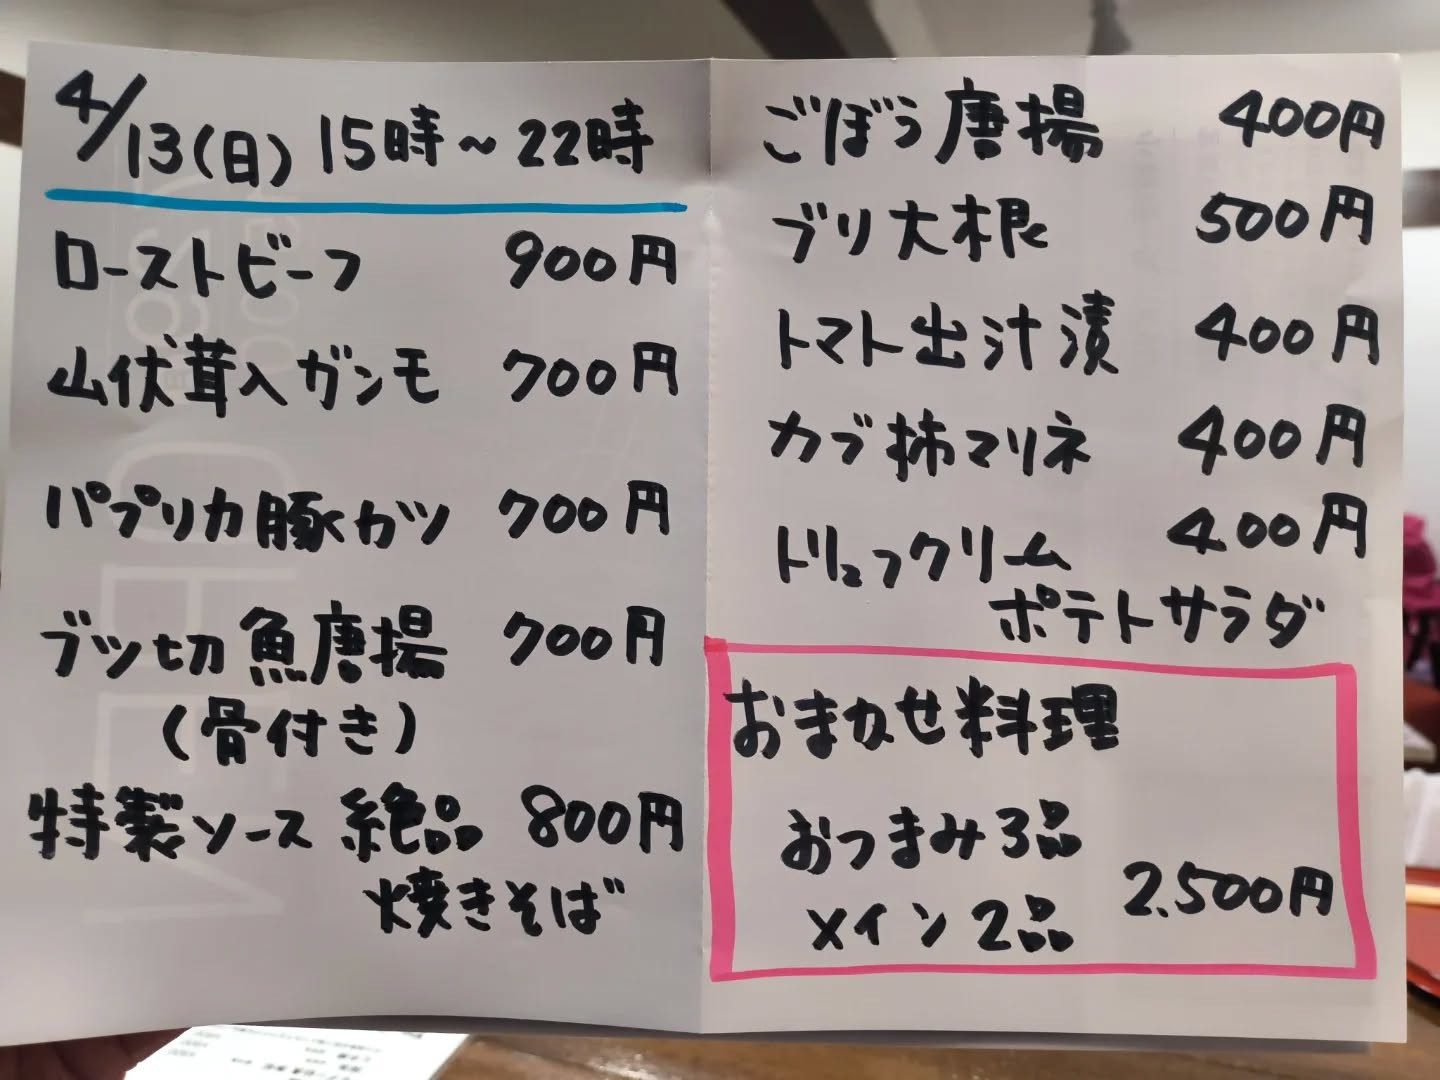 4/13(日) 15時~22時
ローストビーフ 900円
山伏茸入ガンモ 700円
パプリカ豚カツ 700円
ブツ切魚唐揚 700円
(骨付き)
特製ソース 絶品 800円
焼きそば
ごぼう唐揚 400円
ブリ大根 500円
トマト出汁漬 400円
カブ柿マリネ 400円
トリュフクリーム 400円
ポテトサラダ
おまかせ料理
おつまみ3品
メイン2品 2.500円